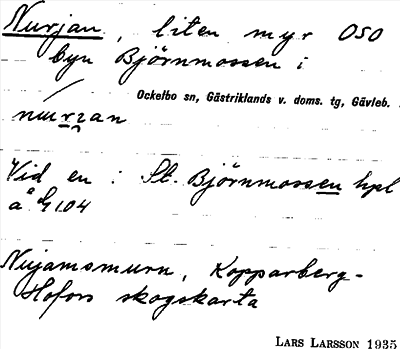 Nurjan, liten myr OSO
byn Björnmossen i
Ockelbo sn, Gästriklands v. doms. tg, Gävleb.
Vid en : St. Björnmossen hpl
Nujamsmurn, Kopparberg-
Hofors skogskarta
LARS LARSSON 1935